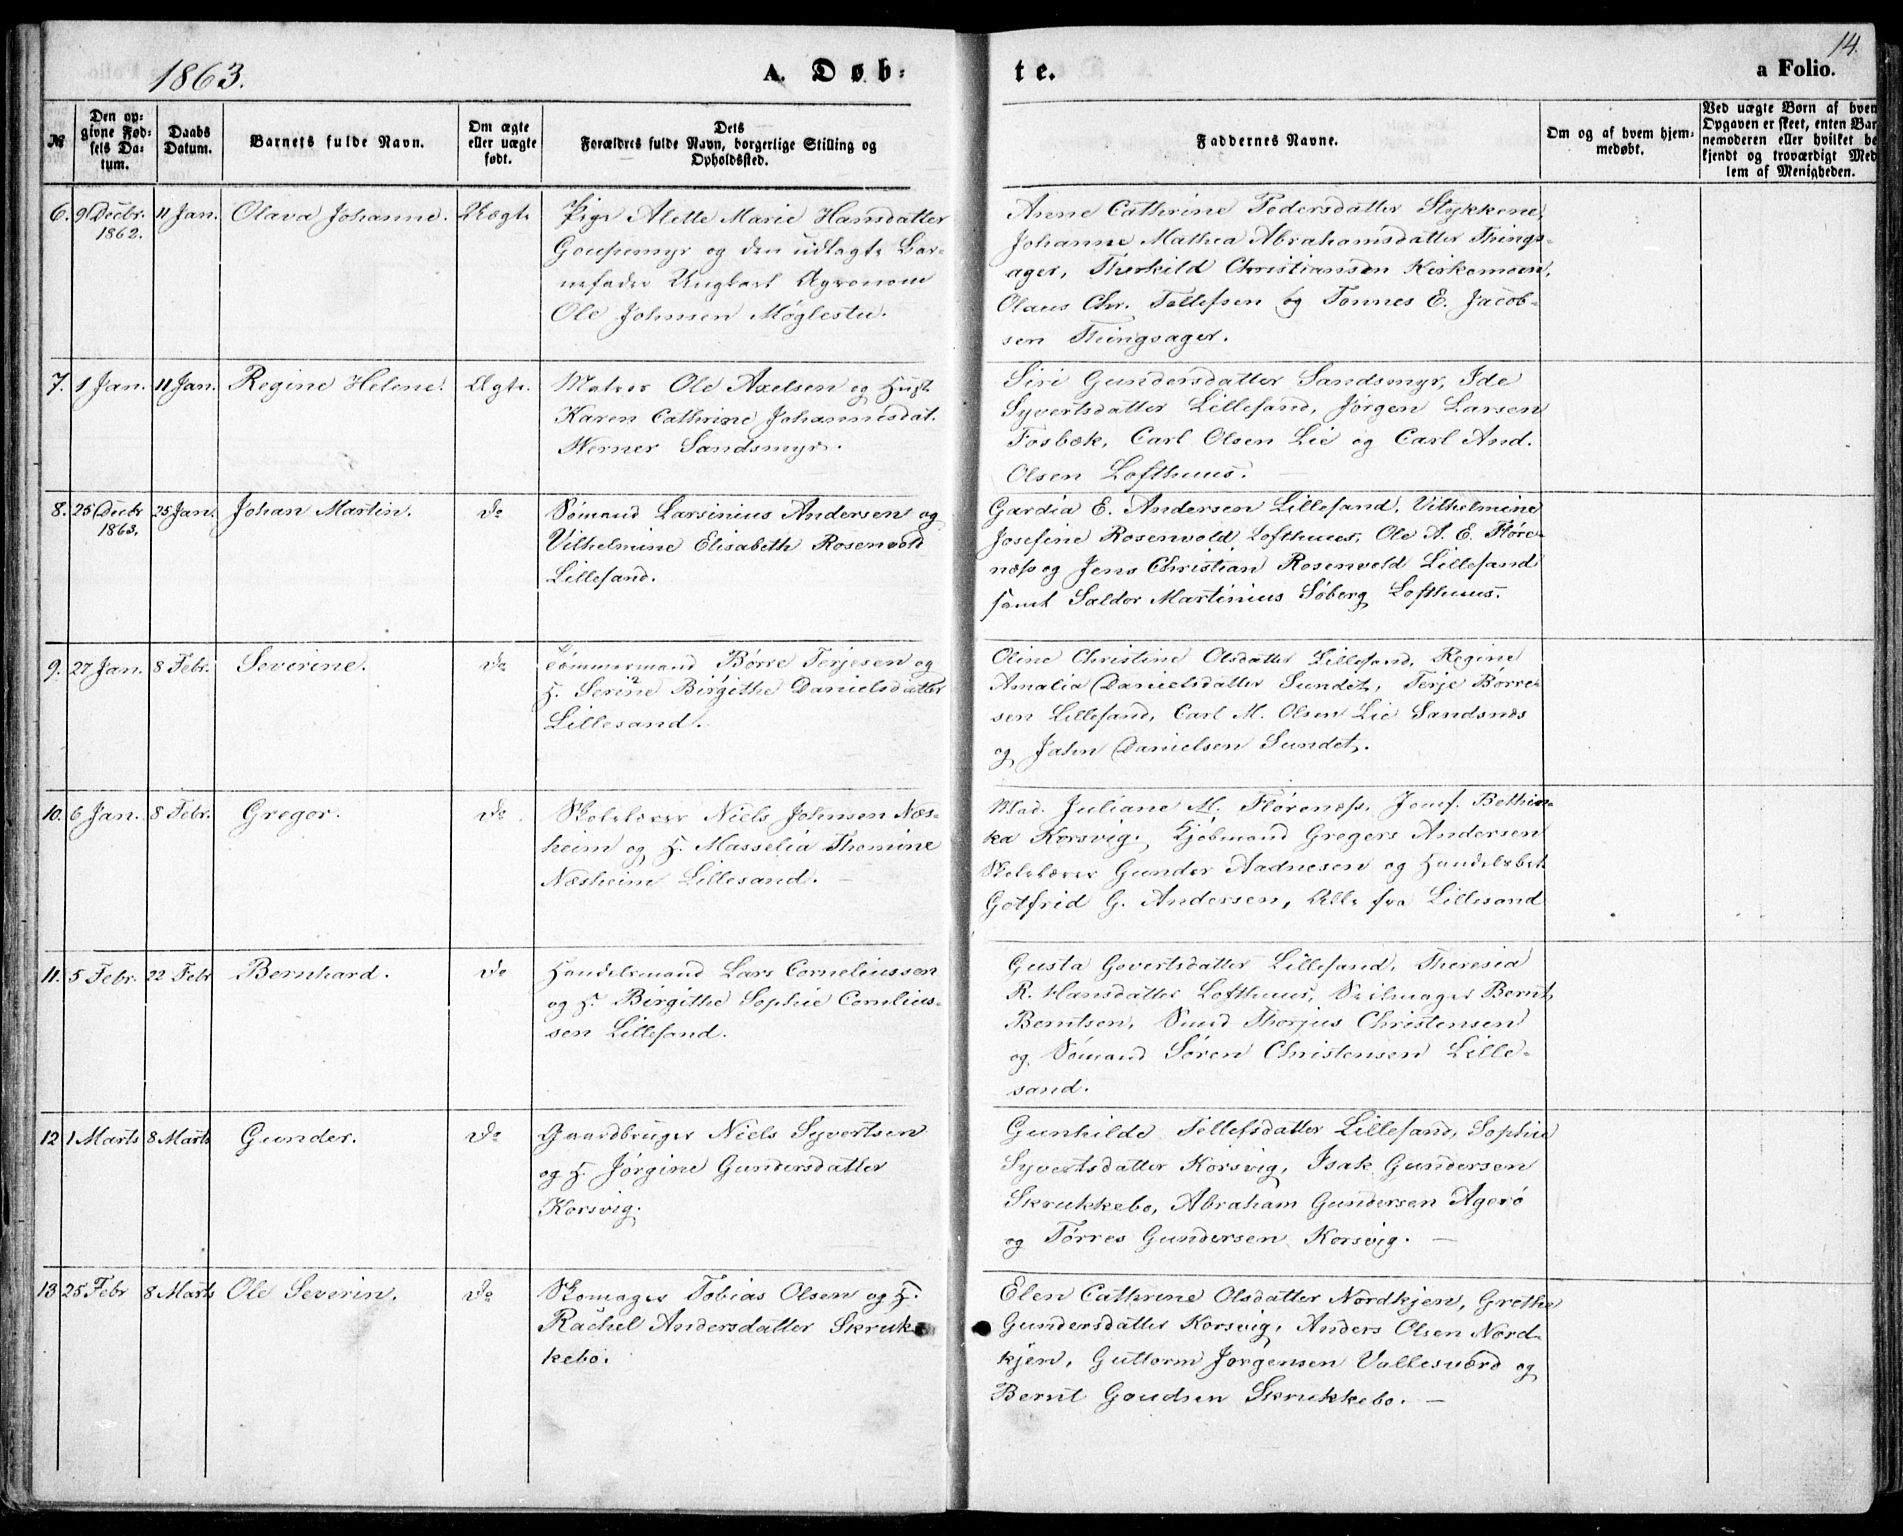 14.
1863.
A. Døb-
te.
a Folio.
№
Den op-
givne Fød-
sels Da-
tum.
Daabs
Datum.
Barnets fulde Navn.
Om ægte
eller uægte
født.
Dets
Forældres fulde Navn, borgerlige Stilling og
Opholdssted.
Faddernes Navne.
Om og af hvem hjem-
medøbt.
Ved uægte Børn af hvem
Opgaven er skeet, enten Bar-
nemoderen eller hvilket be-
kjendt og troværdigt Med-
lem af Menigheden.
6. 9 Decbr. 1862. 11 Jan. Olava Johanne. Uægte
Pige Alette Marie Hansdatter
Goupemyr og den udlagte Bar-
nefader Ungkarl Agronom
Ole Johnsen Møglestu.
Anne Cathrine Pedersdatter Stykkene,
Johanne Mathea Abrahamsdatter Things-
ager, Therkild Christiansen Kirkemoen,
Olaus Chr. Tellefsen og Tønnes E. Jacob-
sen Thingsager.
7. 1 Jan. 11 Jan. Regine Helene. Ægte.
Matros Ole Axelsen og Hust.
Karen Cathrine Johannesdat.
Werner Sandsmyr.
Siri Gundersdatter Sandsmyr, Ide
Syvertsdatter Lillesand, Jørgen Larsen
Fosbæk, Carl Olsen Lie og Carl And.
Olsen Lofthuus.
8. 25 Decbr 1863. 25 Jan. Johan Martin. do
Sømand Larsinius Andersen og
Vilhelmine Elisabeth Rosenvold
Lillesand.
Gardia E. Andersen Lillesand, Vilhelmine
Josefine Rosenvold Lofthuus, Ole A. E. Fløre-
næs og Jens Christian Rosenvold Lillesand
samt Saldor Martinius Søberg Lofthuus.
9. 27 Jan. 8 Febr. Severine. do
Tømmermand Børre Terjesen og
H. Serine Birgithe Danielsdatter
Lillesand.
Oline Christine Olsdatter Lillesand, Regine
Amalia Danielsdatter Sundet, Terje Børre-
sen Lillesand, Carl M. Olsen Lie Sandsnæs
og Jahn Danielsen Sundet.
10. 6 Jan. 8 Febr. Gregor. do.
Skolelærer Niels Johnsen Næs-
heim og H. Masselia Thomine
Næsheim Lillesand.
Mad. Juliane M. Flørenæs, Jomf. Bethin-
ka Korsvig, Kjøbmand Gregers Andersen
Skolelærer Gunder Aadnesen og Handelsbet.
Gotfrid G. Andersen, Alle fra Lillesand
11. 5 Febr. 22 Febr Bernhard. do
Handelsmand Lars Corneliussen
og H. Birgithe Sophie Cornelius-
sen Lillesand.
Gusta Govertsdatter Lillesand, Theresia
R. Hansdatter Lofthuus, Seilmager Bernt
Berntsen, Smed Thorjus Christensen
og Sømand Søren Christensen Lille-
sand.
12 1 Marts 8 Marts Gunder. do
Gaardbruger Niels Syvertsen
og H. Jørgine Gundersdatter
Korsvig.
Gunhilde Tellefsdatter Lillesand, Sophie
Syvertsdatter Korsvig, Isak Gundersen
Skrukkebo, Abraham Gundersen Agerø
og Tørres Gundersen Korsvig.
13 25 Febr 8 Marts Ole Severin. do
Skomager Tobias Olsen og H.
Rachel Andersdatter Skruk-
kebo.
Elen Cathrine Olsdatter Nordkjen, Grethe
Gundersdatter Korsvig, Anders Olsen Nord-
kjen, Guttorm Jørgensen Vallesværd og
Bernt Goudsen Skrukkebo.